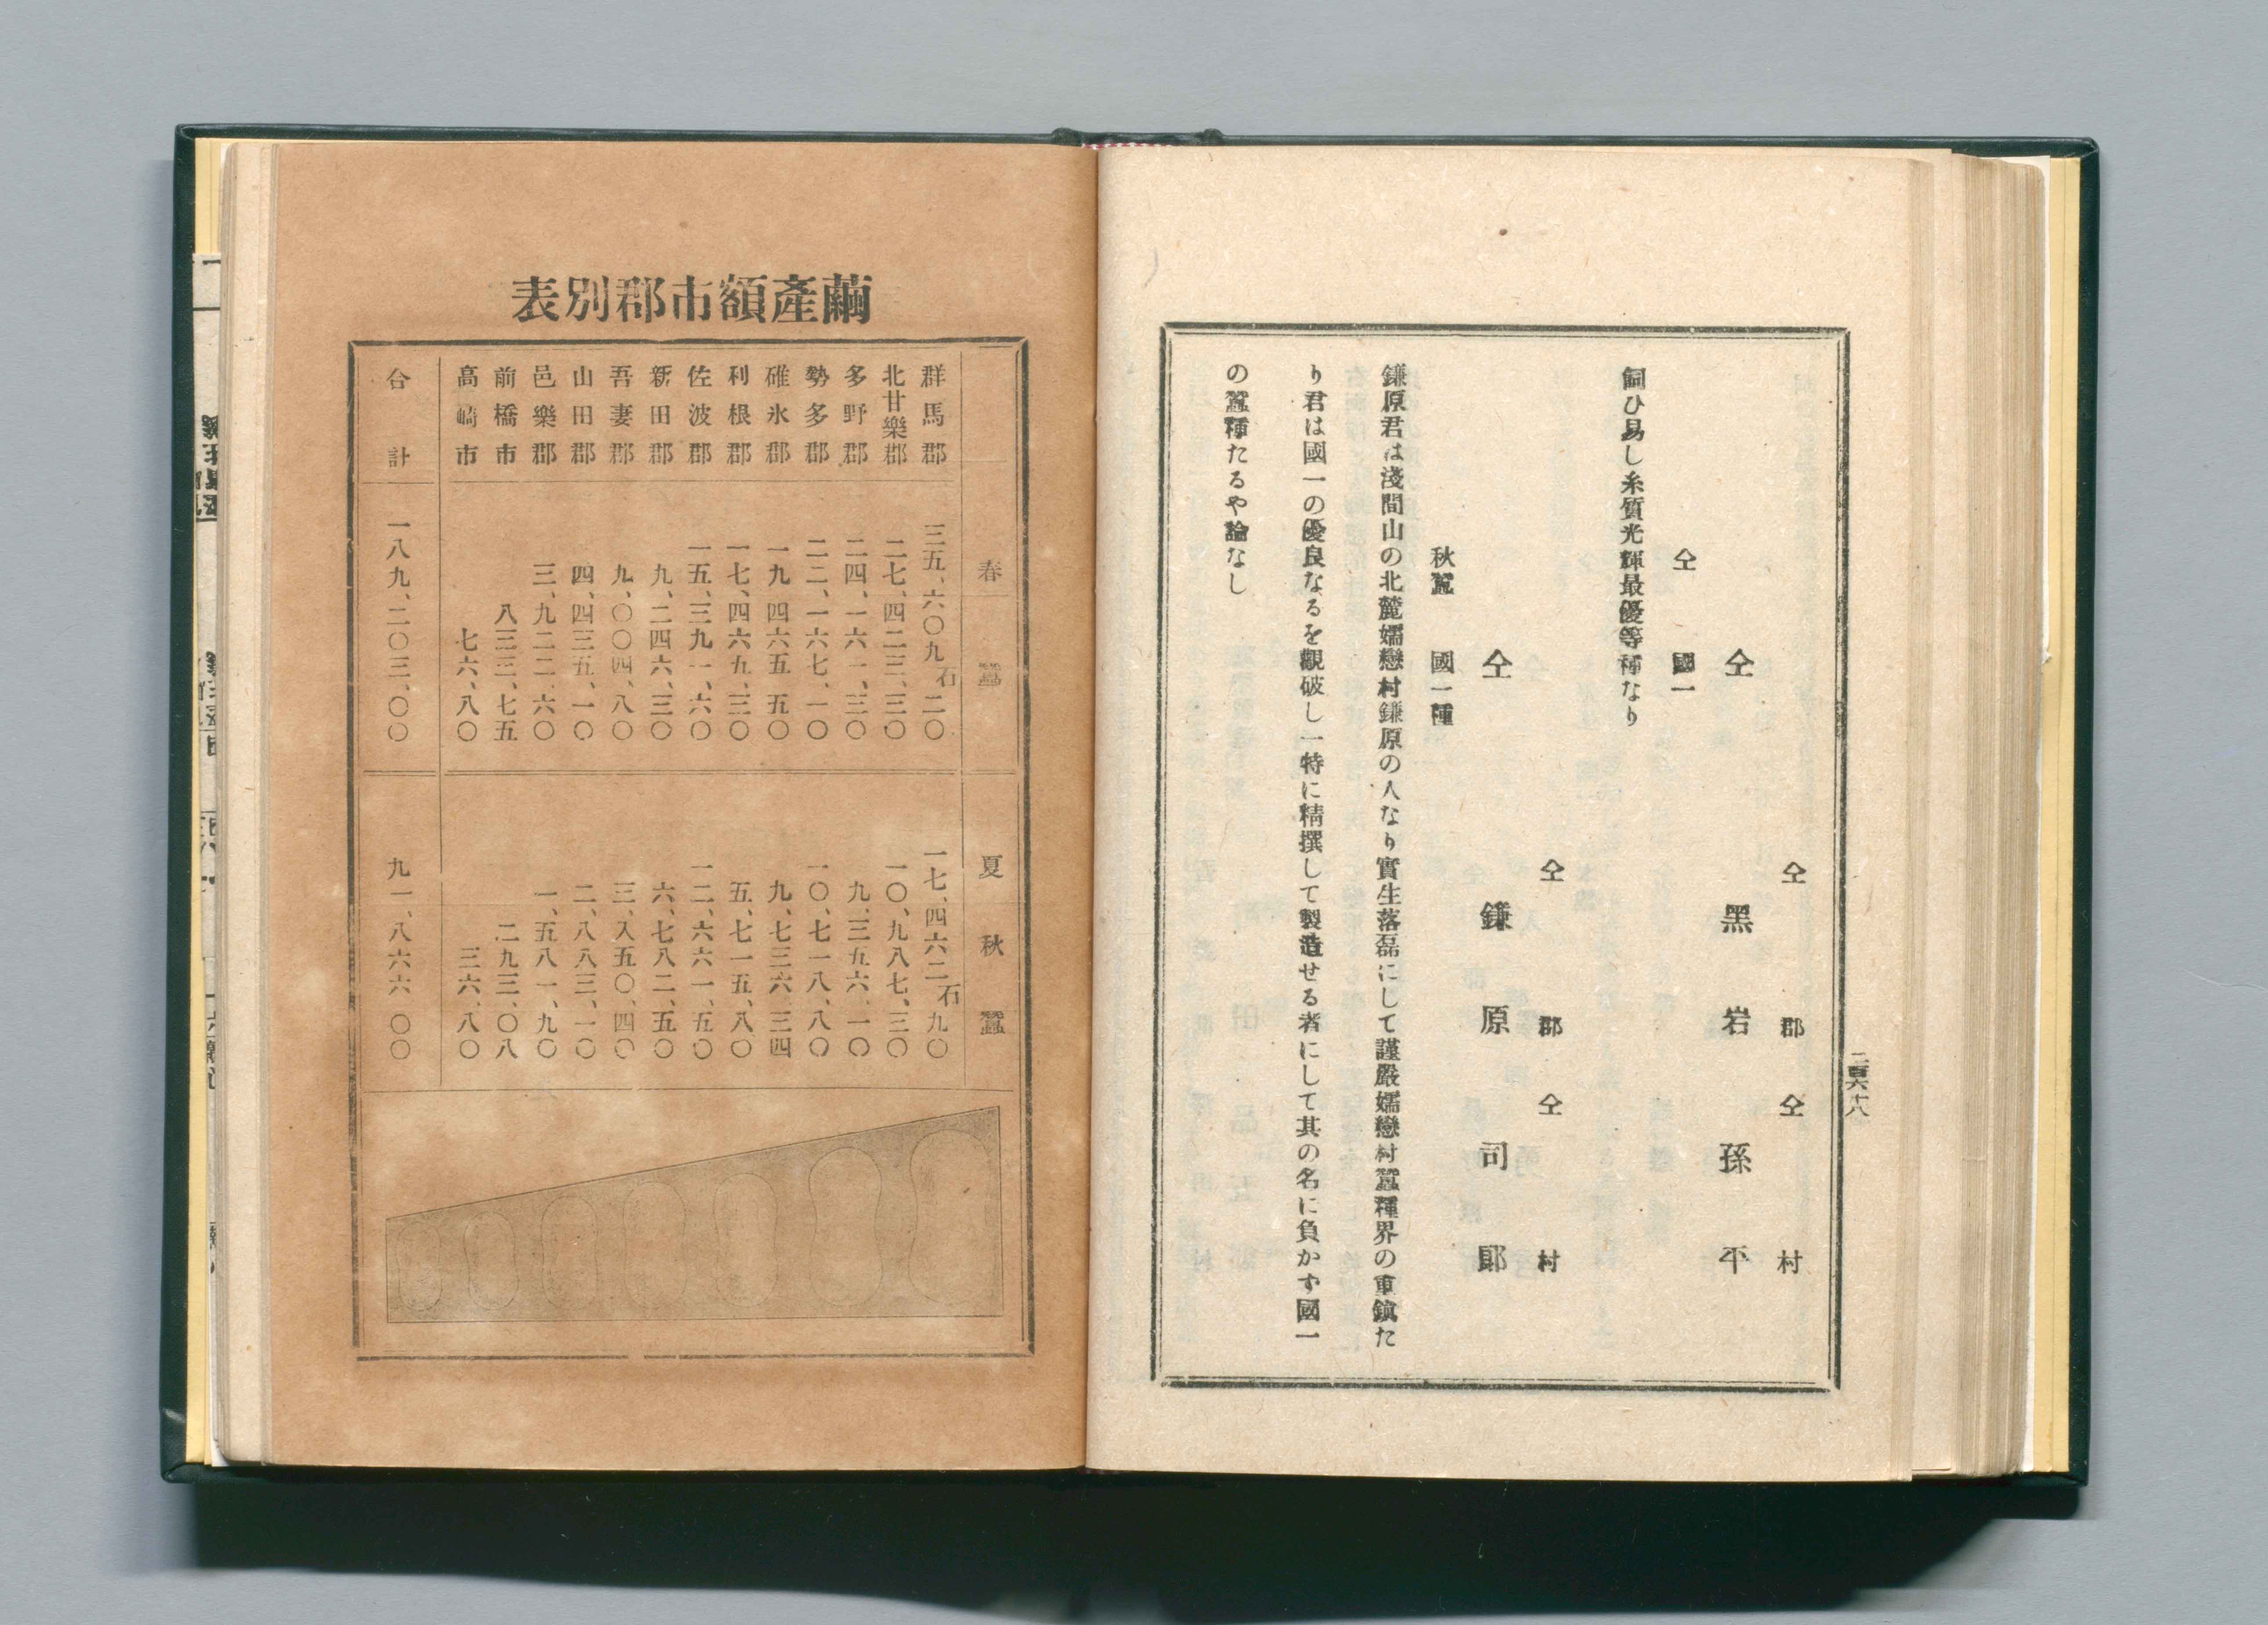 二百六十八
仝郡仝村
仝 黑岩孫平
仝 國一
飼ひ易し糸質光輝最優等種なり
仝郡仝村
仝 鎌原司郞
秋蠶 國一種
鎌原君は淺間山の北麓嬬戀村鎌原の人なり實生落磊にして謹嚴嬬戀村蠶種界の重鎭た
り君は國一の優良なるを觀破し一特に精撰して製造せる者にして其の名に負かず國一
の蠶種たるや論なし
繭產額市郡別表
春蠶 夏秋蠶
群馬郡 三五、六〇九石二〇 一七、四六二石九〇
北甘樂郡 二七、四二三、三〇 一〇、九八七、三〇
多野郡 二四、一六一、三〇 九、三五六、一〇
勢多郡 二二、一六七、一〇 一〇、七一八、八〇
碓氷郡 一九、四六五、五〇 九、七三六、三四
利根郡 一七、四六九、三〇 五、七一五、八〇
佐波郡 一五、三九一、六〇 一二、六六一、五〇
新田郡 九、二四六、三〇 六、七八二、五〇
吾妻郡 九、〇〇四、八〇 三、入五〇、四〇
山田郡 四、四三五、一〇 二、八八三、一〇
邑樂郡 三、九二二、六〇 一、五八一、九〇
前橋市 八三三、七五 二九三、〇八
高崎市 七六、八〇 三六、八〇
合計 一八九、二〇三、〇〇 九一、八六六、〇〇